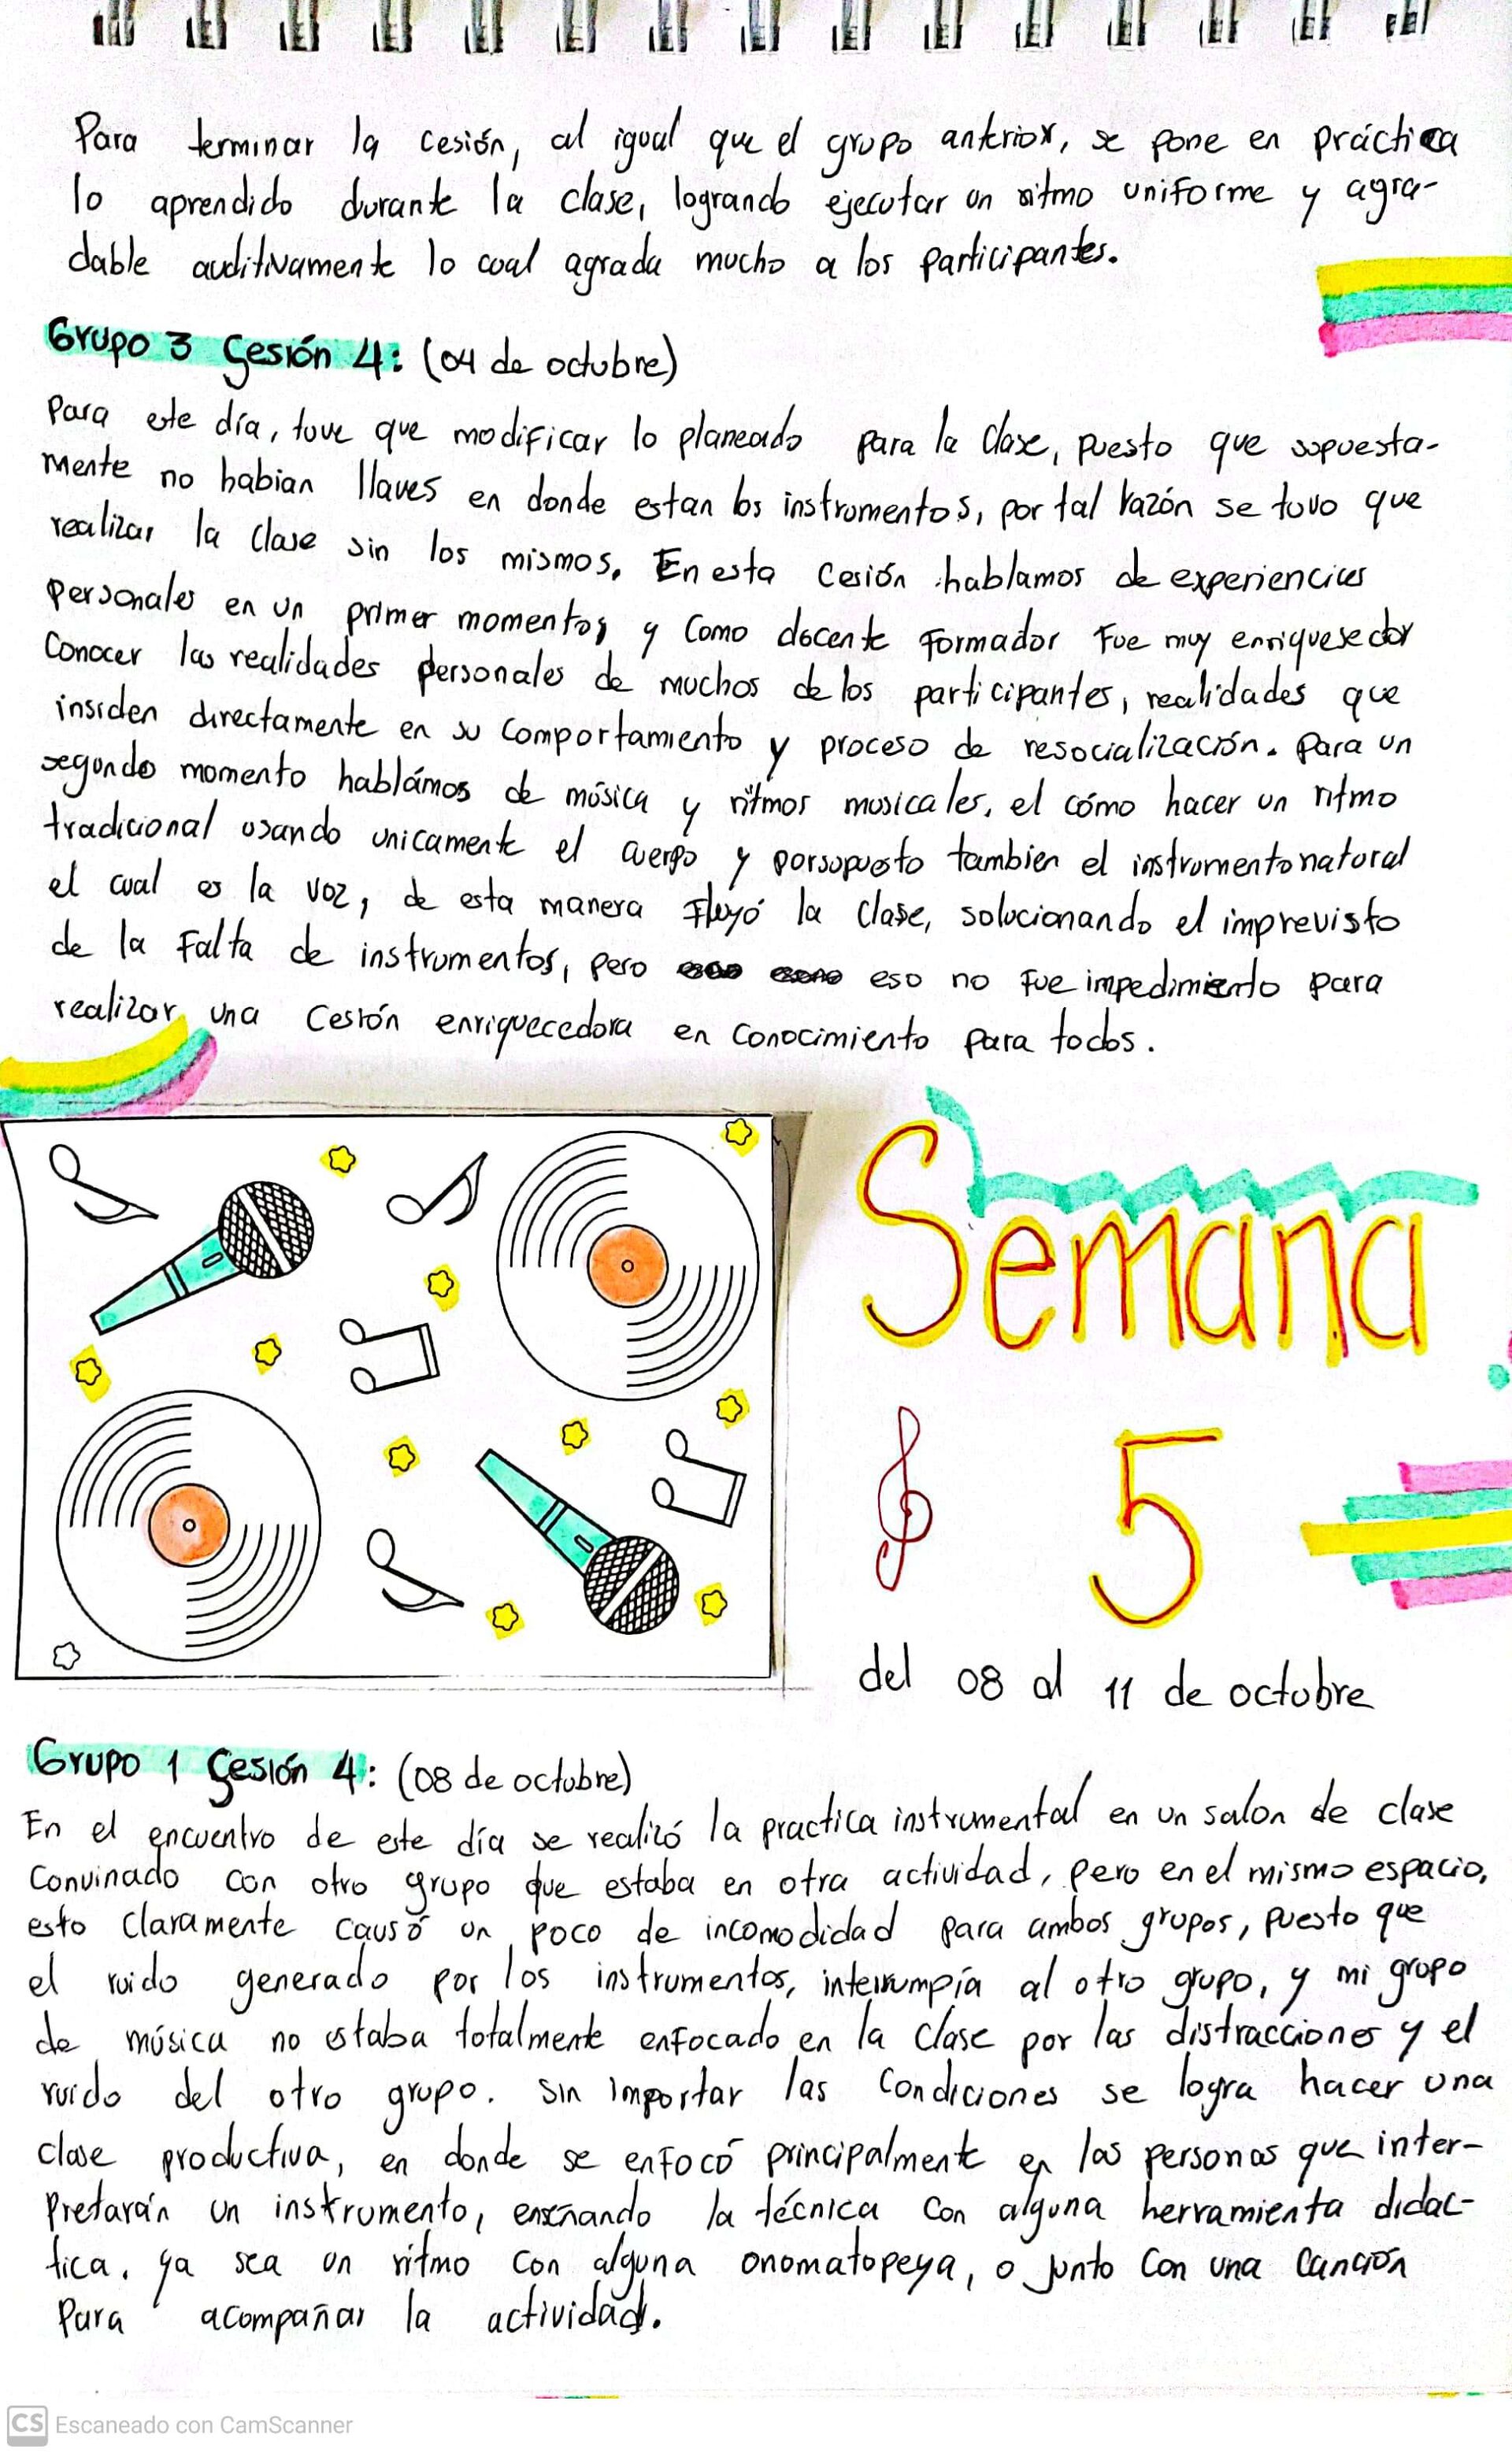 Para terminar la cesión, al igual que el grupo anterior, se pone en práctica
lo aprendido durante la clase, logrando ejecutar un ritmo uniforme y agra-
dable auditivamente lo cual agrada mucho a los participantes.
Grupo 3 Cesión 4: (04 de octubre)
Para este día, tuve que modificar lo planeado para la clase, puesto que supuesta-
mente no habian llaves en donde estan los instrumentos, por tal razón se tuvo que
realizar la clase sin los mismos. En esta cesión hablamos de experiencias
personales en un primer momentos y como docente formador fue muy enriquesedor
conocer las realidades personales de muchos de los participantes, realidades que
insiden directamente en su comportamiento y proceso de resocialización. Para un
segundo momento hablámos de música y ritmos musicales, el cómo hacer un ritmo
tradicional usando unicamente el cuerpo y porsupuesto tambien el instrumento natural
el cual es la voz, de esta manera fluyó la clase, solucionando el imprevisto
de la falta de instrumentos, pero eso no fue impedimiento para
realizar una cesión enriquecedora en conocimiento para todos.
Semana
5
del 08 al 11 de octubre
Grupo 1 Cesión 4: (08 de octubre)
En el encuentro de este día se realizó la practica instrumental en un salon de clase
convinado con otro grupo que estaba en otra actividad, pero en el mismo espacio,
esto claramente causó un poco de incomodidad para ambos grupos, puesto que
el ruido generado por los instrumentos, interrumpía al otro grupo, y mi grupo
de música no estaba totalmente enfocado en la clase por las distracciones y el
ruido del otro grupo. Sin importar las condiciones se logra hacer una
clase productiva, en donde se enfocó principalmente en las personas que inter-
pretarán un instrumento, enseñando la técnica con alguna herramienta didac-
tica. ya sea un ritmo con alguna onomatopeya, o junto con una canción
para acompañar la actividad.
CS Escaneado con CamScanner